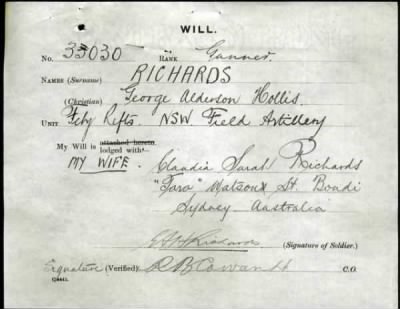 WILL.
No. 33030 RANK Gunner.
NAMES (Surname) RICHARDS
(Christian) George Alderson Hollis.
UNIT Feby Refts. NSW Field Artillery
My Will is attached hereto. lodged with
MY WIFE. Claudia Sarah Richards
"Tara" Matson St. Bondi
Sydney Australia
GAHRichards (Signature of Soldier.)
Signature (Verified): C.O.